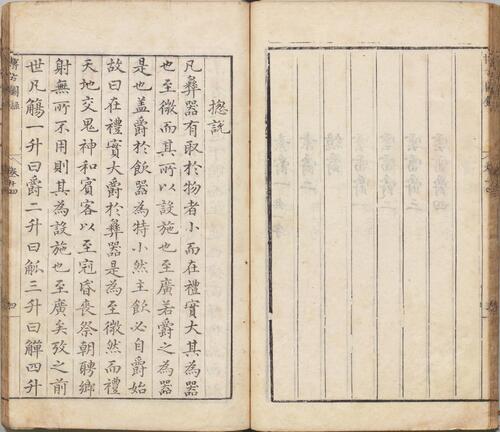 捴說
凡彝器有取於物者小而在禮實大其為器
也至微而其所以設施也至廣若爵之為器
是也蓋爵於飲器為特小然主飲必自爵始
故曰在禮實大爵於彝器是為至微然而禮
天地交鬼神和賓客以至冠昏喪祭朝聘鄉
射無所不用則其為設施也至廣矣攷之前
世凡觴一升曰爵二升曰觚三升曰觶四升
博古圖錄
卷十四
四